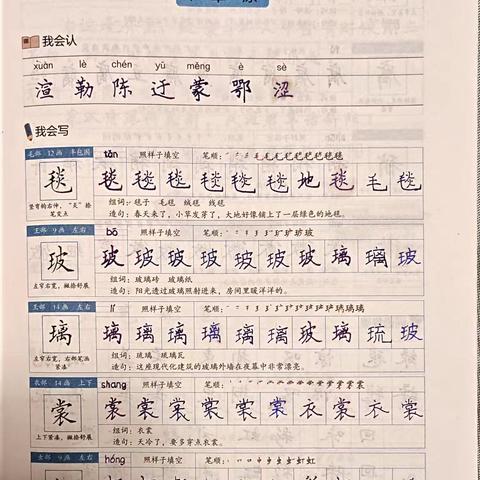 我会认
xuàn lè chén yū měng è sè
渲 勒 陈 迂 蒙 鄂 涩
我会写
毛部 12画 半包围 tǎn 照样子填空 笔顺:
毯 毯 毯 毯 毯 毯 毯 地 毯 毛 毯
竖弯钩右伸,“炎”捺笔变点
组词:毯子 毛毯 绒毯 线毯
造句:春天来了,小草发芽了,大地好像铺上了一层绿色的地毯。
王部 9画 左右 bō 照样子填空 笔顺:
玻 玻 玻 玻 玻 玻 玻 玻 璃 璃 玻
左窄右宽,撇捺舒展
组词:玻璃砖 玻璃纸
造句:阳光透过玻璃照射进来,房间里暖洋洋的。
王部 14画 左右 lí 照样子填空 笔顺:
璃 璃 璃 璃 璃 璃 璃 玻 璃 琉 玻
左窄右宽,右部笔画紧凑
组词:琉璃 琉璃瓦
造句:这座现代化建筑的玻璃外墙在夜幕中非常漂亮。
衣部 14画 上下 shang 照样子填空 笔顺:
裳 裳 裳 裳 裳 裳 裳 衣 裳 衣 裳
上下紧凑,撇捺舒展
组词:衣裳
造句:天冷了,要多穿点衣裳。
虫部 9画 左右 hóng 照样子填空 笔顺: